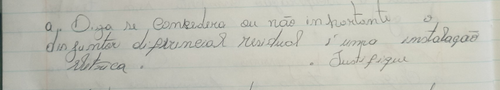 a, Diga se considera ou não inportante o
disjuntor diferencial residual i uma instalação
eletrica. Justifique